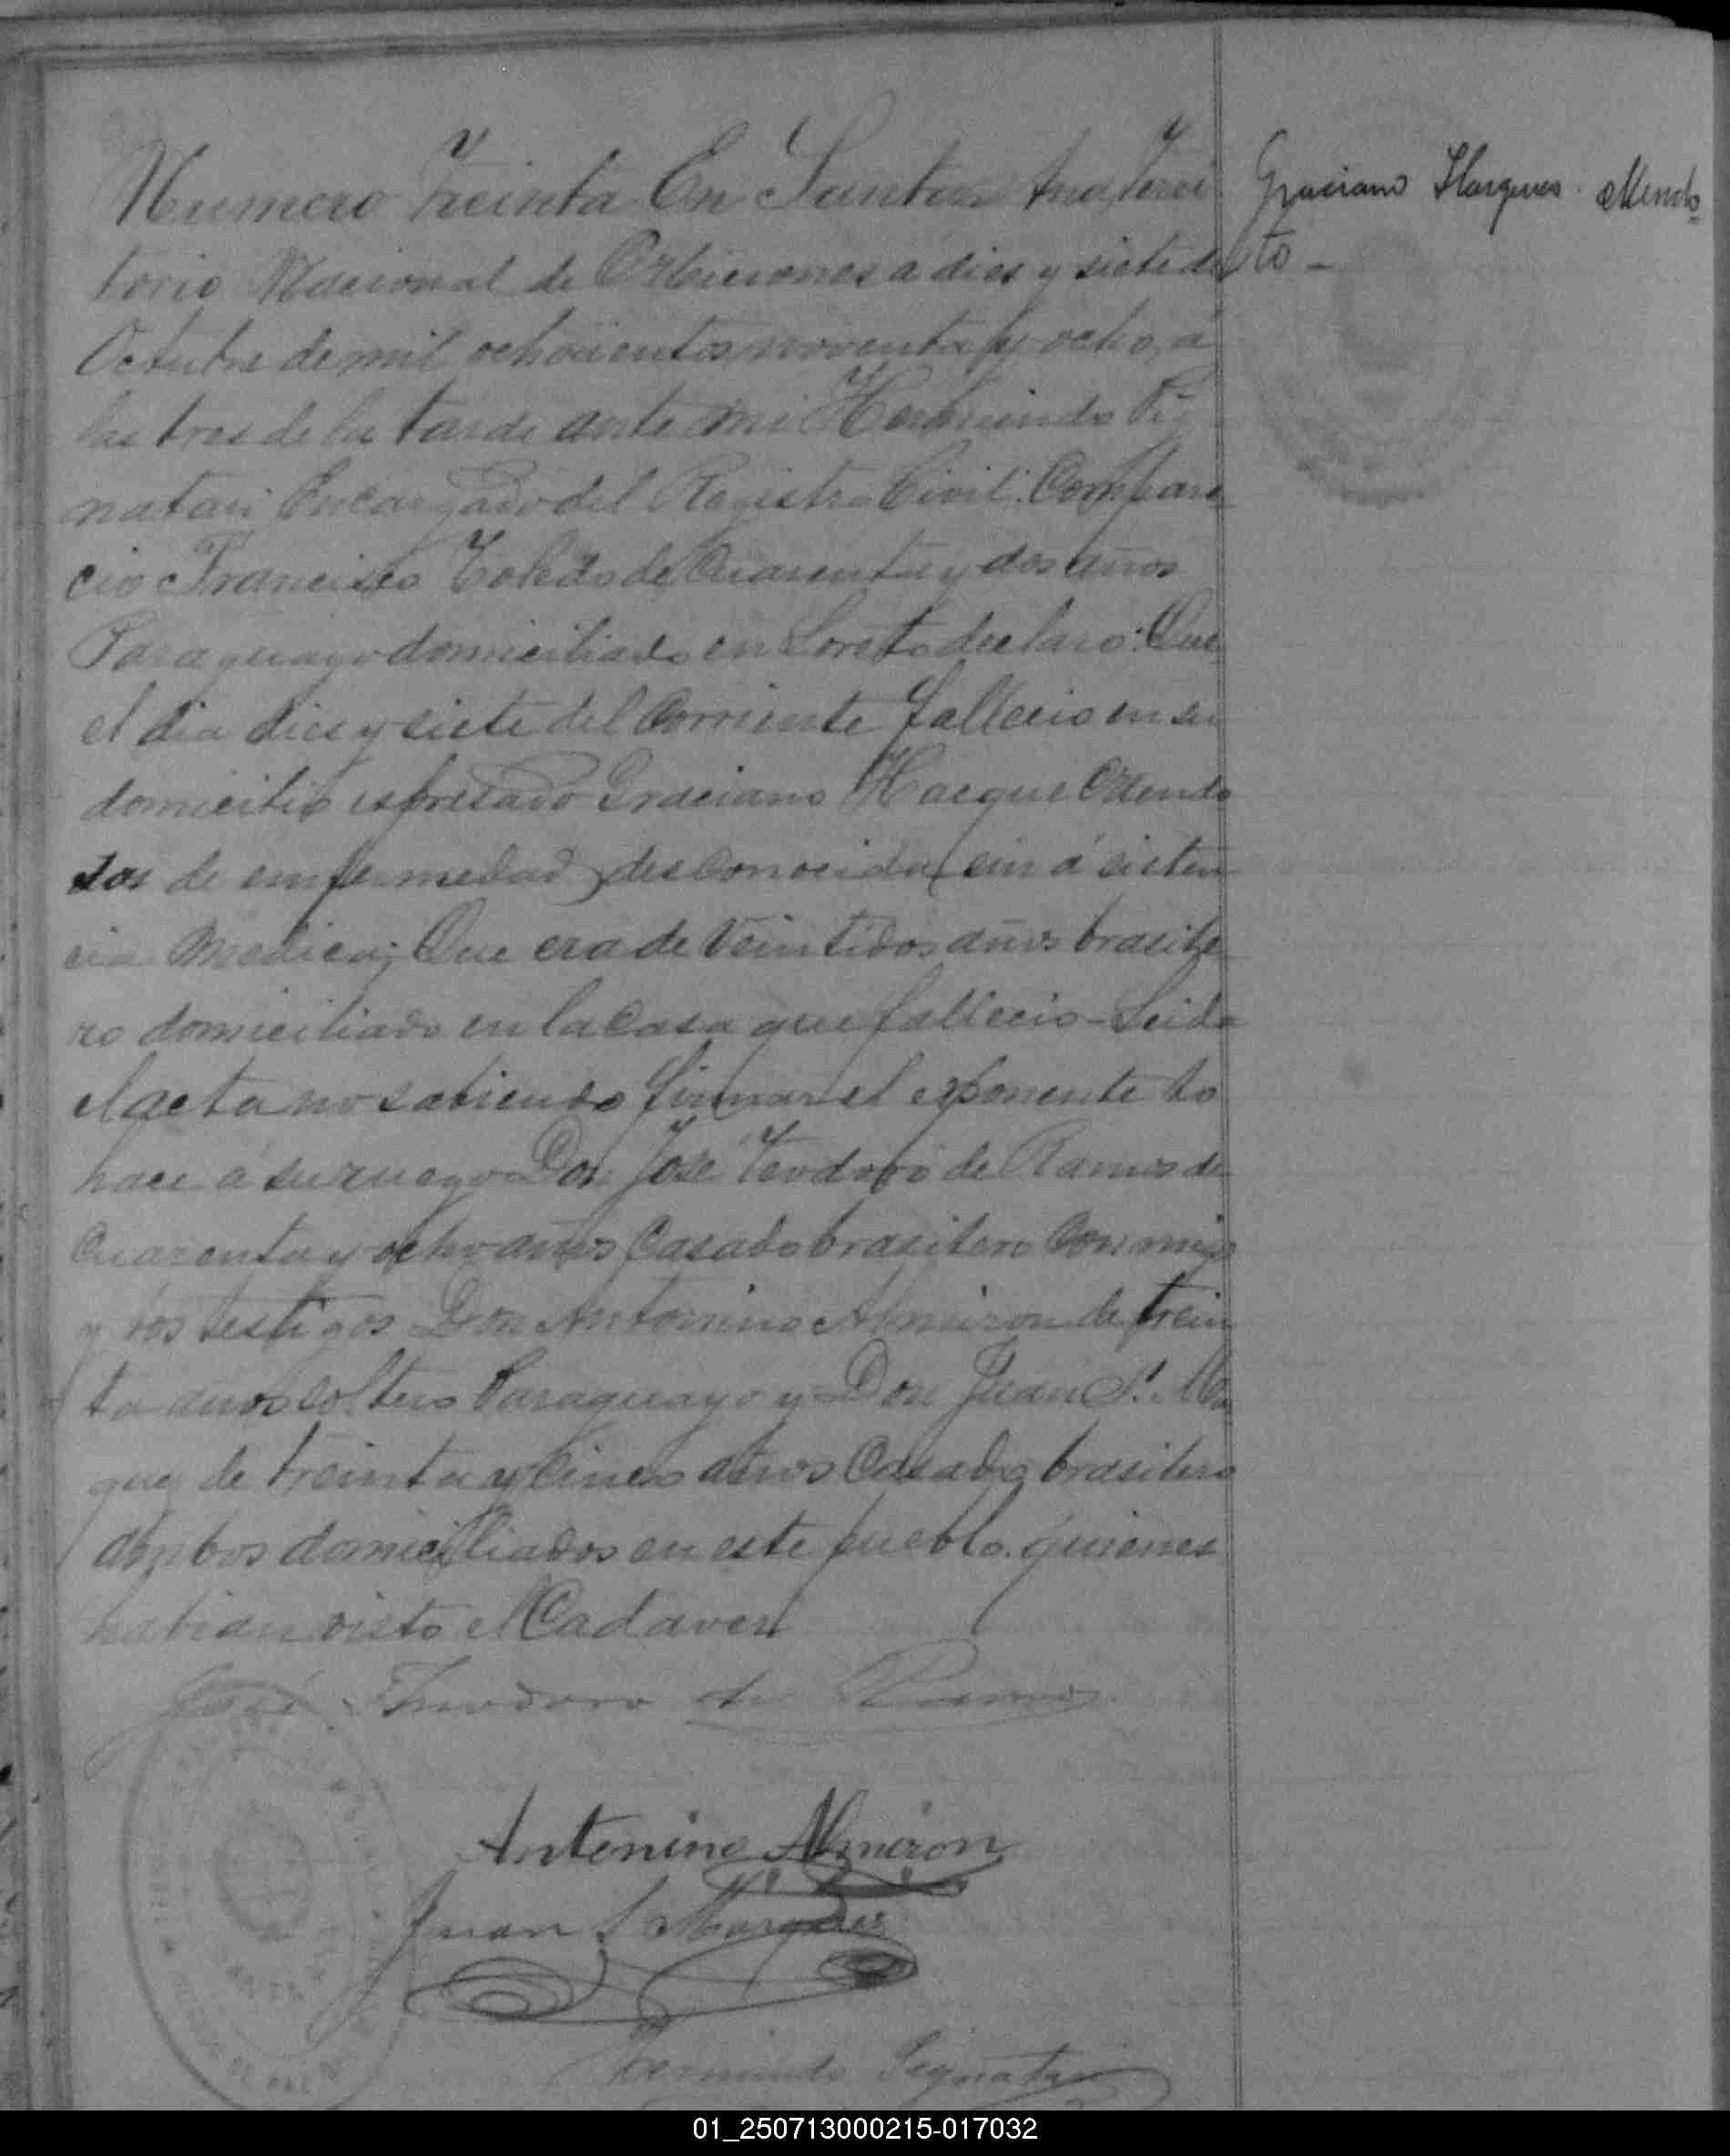 Numero Treinta En Santa Ana, Terri
torio Nacional de Misiones a dies y siete de
Octubre de mil ochocientos noventa y ocho, á
las tres de la tarde ante mi Herminindo Pig
natari Encargado del Registro Civil: Compare
cio Francisco Toledo de Cuarenta y dos años
Paraguayo domiciliado en Loreto declaro: Que
el dia dies y siete del Corriente fallecio en su
domicilio espresado Graciano Hacque Mendo
sos de enfermedad desconocida sin ásisten
cia Medica; Que era de Veintidos años brasile
ro domiciliado en la Casa que fallecio - Leida
el acta no sabiendo firmar el exponente lo
hace á su ruego Don José Teodoro de Ramos de
Cuarenta y ocho años Casado brasilero Con migo
y los testigos Don Antonino Almiron de trein
ta años soltero Paraguayo y Don Juan S. Ma
quez de treinta y Cinco años Casado brasilero
ambos domiciliados en este pueblo. quienes
habian visto el Cadaver
José Theodoro de Ramos
Antenino Almiron
Juan S Marques
Herminindo Pignatari
Graciano Hargues Mendo
to -
01_250713000215-017032